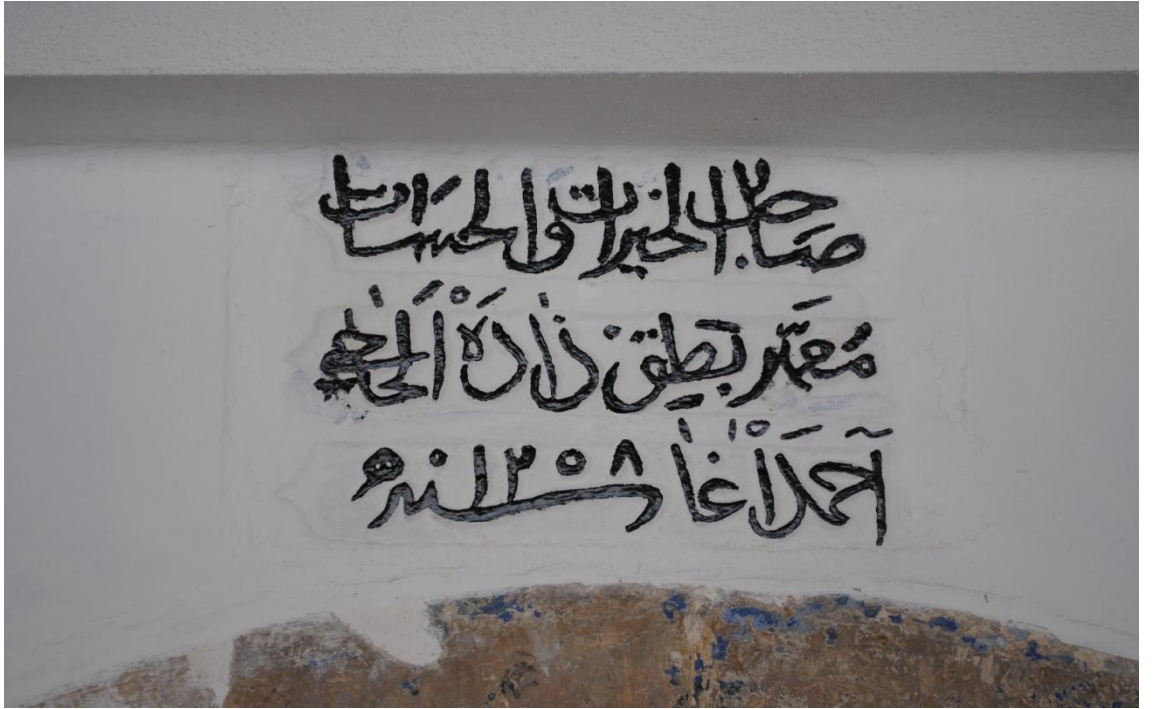 صاحب الخيرات والحسنات
مُعمّر زاده الحاجي
احمد اغا سنه ١٢٠٨